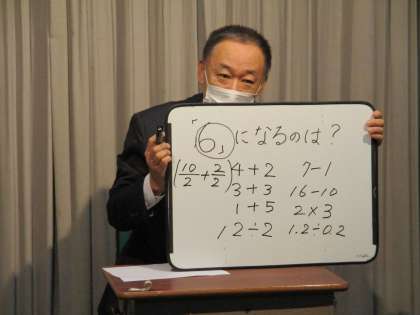 「6」になるのは?
(10/2+2/2) 4+2 7-1
3+3 16-10
1+5 2×3
12÷2 1.2÷0.2